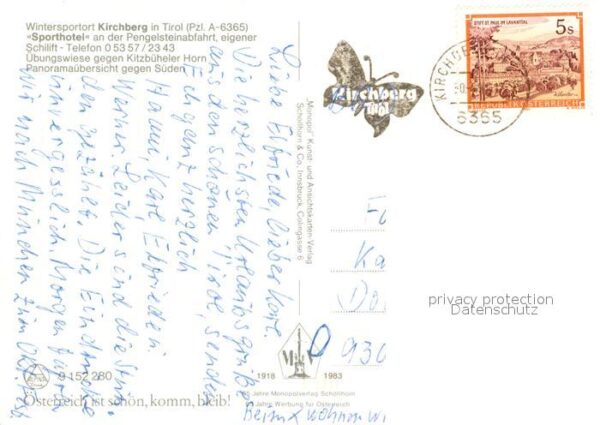 Wintersportort Kirchberg in Tirol (Pzl. A-6365)
«Sporthotel» an der Pengelsteinabfahrt, eigener
Schilift - Telefon 0 53 57 / 23 43
Übungswiese gegen Kitzbüheler Horn
Panoramaübersicht gegen Süden
Liebe Elfriede, lieber
Die herzlichsten Urlaubsgrüße
aus dem schönen Tirol, senden
Euch ganz herzlich
Hanni, Karl Elfrieden.
Werner. Leider sind die
gezählt. Die Eindrücke
unvergesslich. Morgen fahren
wir nach München zum
wohnen wi
Monopol" Kunst- und Ansichtskarten-Verlag
Schöllhorn & Co., Innsbruck, Colingasse 6
STIFT ST. PAUL IM LAVANTTAL
5s
REPUBLIK ÖSTERREICH
KIRCHBERG
6365
Kirchberg
Tirol
Ka
930
privacy protection
Datenschutz
1918
1983
Jahre Monopolverlag Schöllhorn
Jahre Werbung für Österreich
9 152 280
Österreich ist schön, komm, bleib!